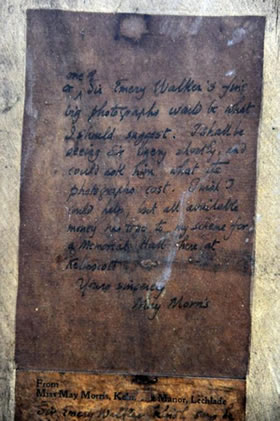 one of
Sir Emery Walker's fine
big photographs would be what
I should suggest. I shall be
seeing Sir Emery shortly, and
could ask him what the
photographs cost. I wish I
could help but all available
money has to go to my scheme for
a Memorial Hall here at
Kelmscott
Yours sincerely
May Morris
From
Miss May Morris, Manor, Lechlade
Sir Emery Walker